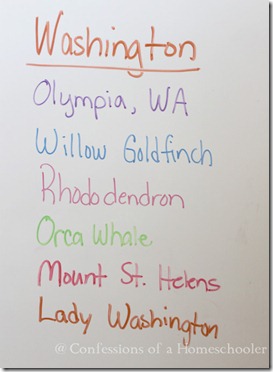 Washington
Olympia, WA
Willow Goldfinch
Rhododendron
Orca Whale
Mount St. Helens
Lady Washington
@ Confessions of a Homeschooler